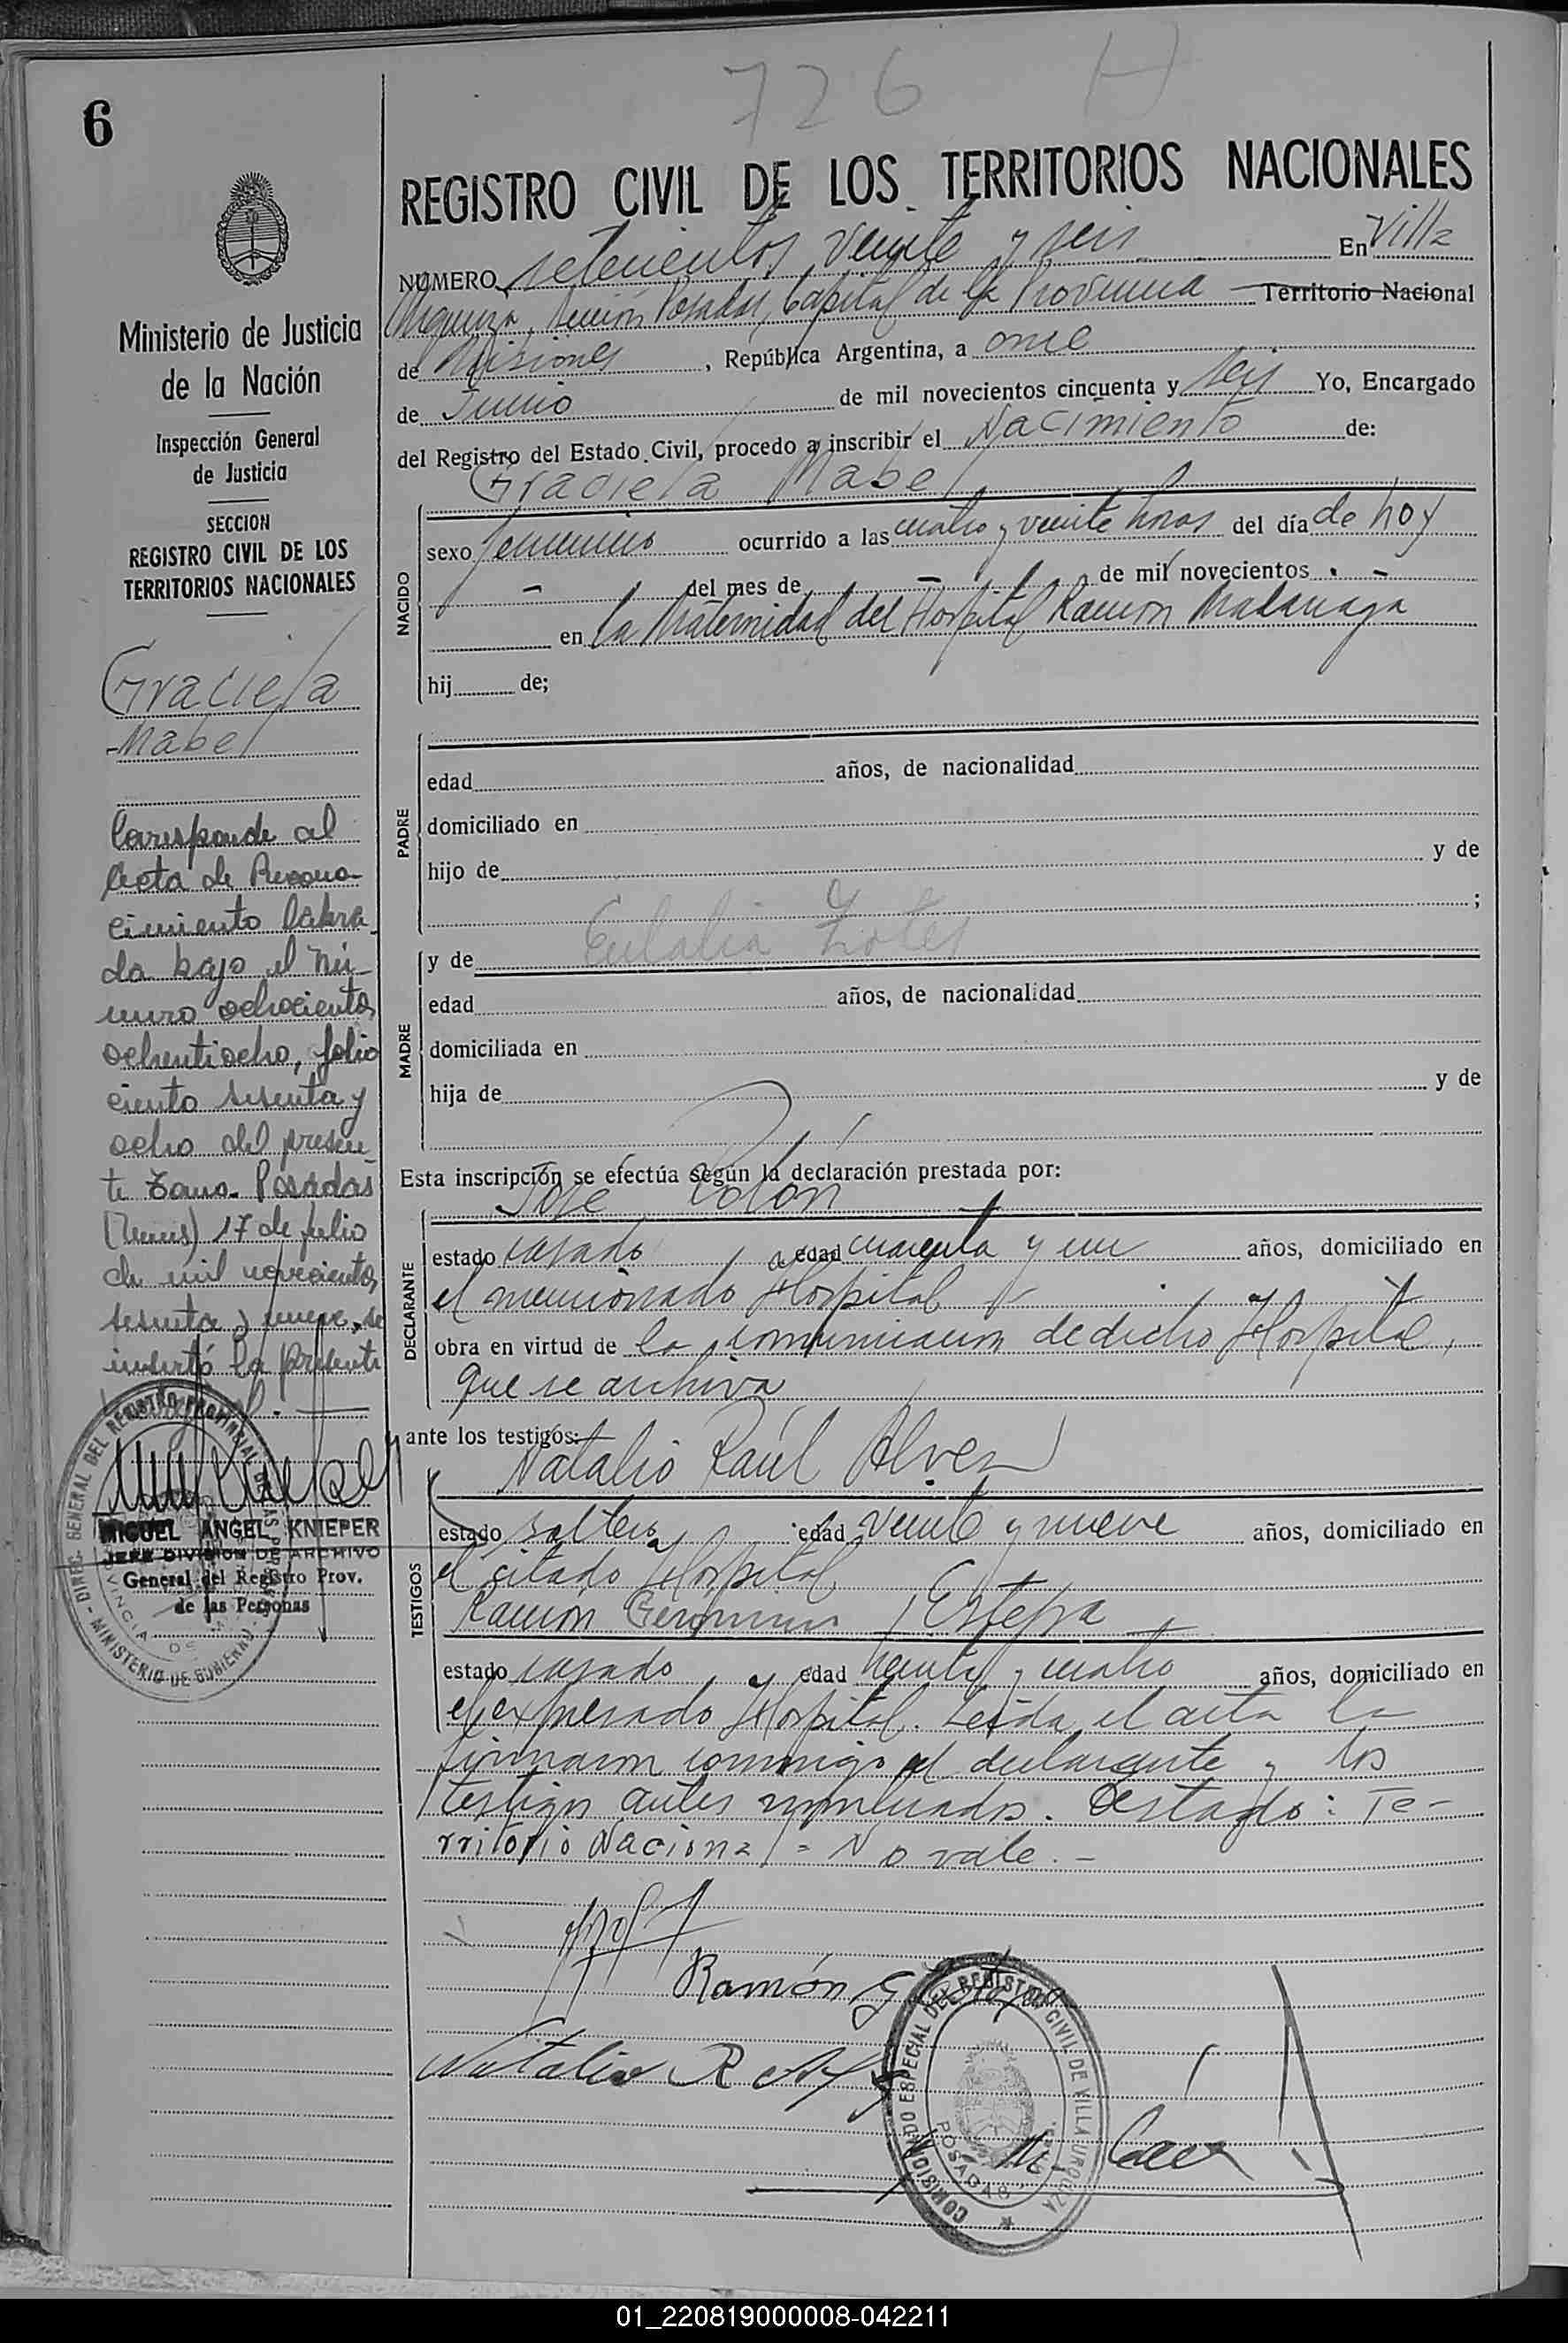 726 H
6
REGISTRO CIVIL DE LOS TERRITORIOS NACIONALES
NÚMERO setecientos veinte y seis En Villa
Urquiza, Sección Posadas, Capital de la Provincia Territorio Nacional
de Misiones, República Argentina, a once
de Junio de mil novecientos cincuenta y seis Yo, Encargado
del Registro del Estado Civil, procedo a inscribir el Nacimiento de:
Graciela Mabel
NACIDO
sexo femenino ocurrido a las cuatro y veinte horas del día de hoy
- del mes de - de mil novecientos -
en la Maternidad del Hospital Ramón Madariaga
hij de;
PADRE
edad años, de nacionalidad
domiciliado en
hijo de y de
;
MADRE
y de Eulalia
edad años, de nacionalidad
domiciliada en
hija de y de
Esta inscripción se efectúa según la declaración prestada por:
José Colón
DECLARANTE
estado casado, edad cuarenta y un años, domiciliado en
el mencionado Hospital y
obra en virtud de la comunicación de dicho Hospital,
que se archiva
ante los testigos:
Natalio Raúl Alvez
TESTIGOS
estado soltero edad veinte y nueve años, domiciliado en
el citado Hospital y
Ramón Gerónimo Estepa
estado casado, edad treinta y cuatro años, domiciliado en
el expresado Hospital. Leída el acta la
firmaron conmigo el declarante y los
testigos antes nombrados. Testado: Te-
rritorio Nacional = No vale. -
Ramón G Estepa
Natalio R
COMISIONADO ESPECIAL DEL REGISTRO CIVIL DE VILLA URQUIZA
POSADAS
Ministerio de Justicia
de la Nación
Inspección General
de Justicia
SECCION
REGISTRO CIVIL DE LOS
TERRITORIOS NACIONALES
Graciela
Mabel
Corresponde al
Acta de Recono-
cimiento labra-
da bajo el Nú-
mero ochocientos
ochentiocho, folio
ciento sesenta y
ocho del presen-
te Tomo. Posadas
(Mnes) 17 de julio
de mil novecientos
sesenta y nueve, se
insertó la presente
DIREC. GENERAL DEL REGISTRO PROVINCIAL DE LAS PERSONAS
MINISTERIO DE GOBIERNO
MIGUEL ANGEL KNIEPER
JEFE DIVISION DE ARCHIVO
General del Registro Prov.
de las Personas
01_220819000008-042211